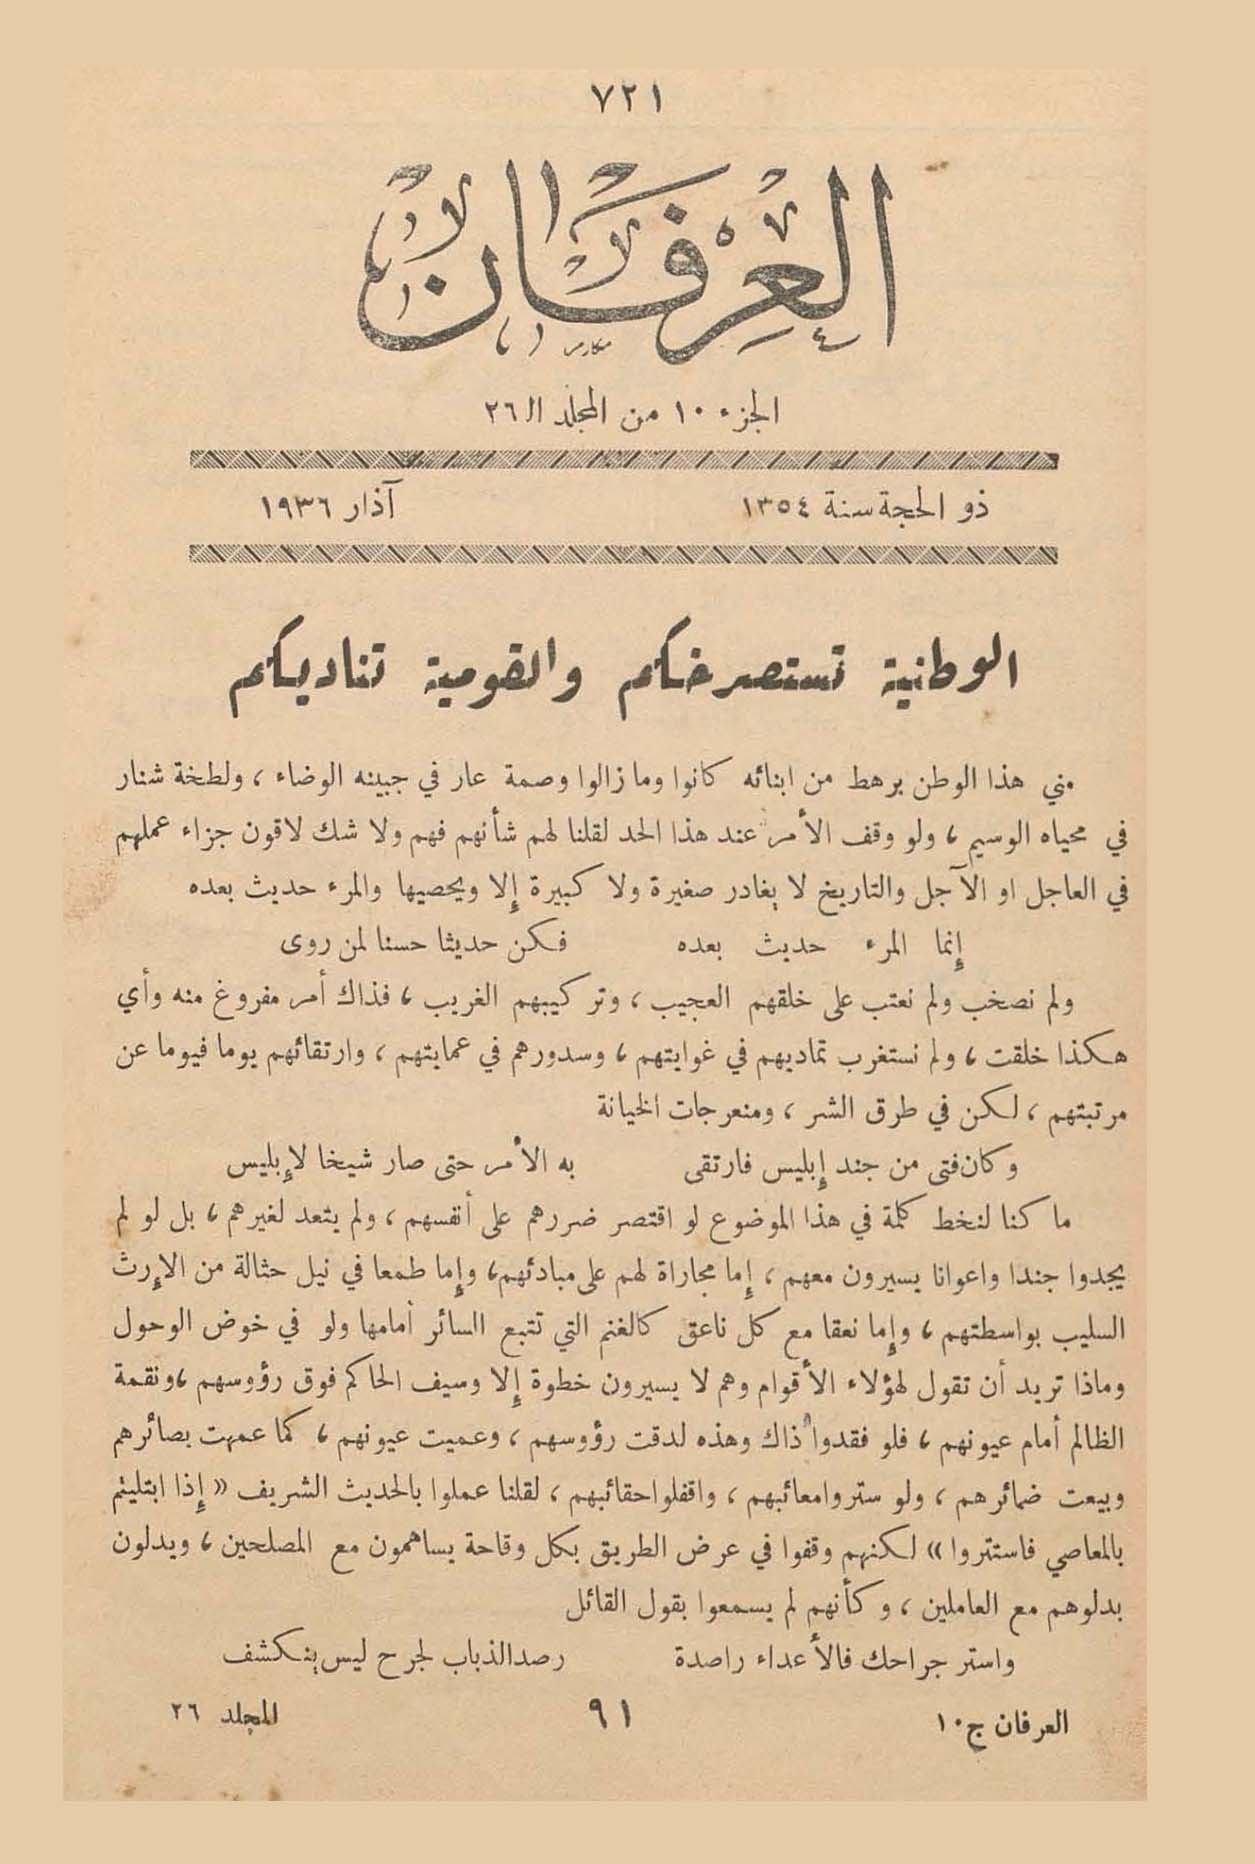 ٧٢١
العرفان
مكارم
الجزء ١٠ من المجلد الـ ٢٦
ذو الحجة سنة ١٣٥٤ آذار ١٩٣٦
الوطنية تستصرخكم والقومية تناديكم
مني هذا الوطن برهط من ابنائه كانوا وما زالوا وصمة عار في جبينه الوضاء ، ولطخة شنار
في محياه الوسيم ، ولو وقف الأمر عند هذا الحد لقلنا لهم شأنهم فهم ولا شك لاقون جزاء عملهم
في العاجل او الآجل والتاريخ لا يغادر صغيرة ولا كبيرة إلا ويحصيها والمرء حديث بعده
إنما المرء حديث بعده فكن حديثا حسنا لمن روى
ولم نصخب ولم نعتب على خلقهم العجيب ، وتركيبهم الغريب ، فذاك أمر مفروغ منه وأي
هكذا خلقت ، ولم نستغرب تماديهم في غوايتهم ، وسدورهم في عمايتهم ، وارتقائهم يوما فيوما عن
مرتبتهم ، لكن في طرق الشر ، ومنعرجات الخيانة
وكان فتى من جند إبليس فارتقى به الأمر حتى صار شيخا لإبليس
ما كنا لنخط كلمة في هذا الموضوع لو اقتصر ضررهم على أنفسهم ، ولم يتعد لغيرهم ، بل لو لم
يجدوا جندا واعوانا يسيرون معهم ، إما مجاراة لهم على مبادئهم ، وإما طمعا في نيل حثالة من الإرث
السليب بواسطتهم ، وإما نعقا مع كل ناعق كالغنم التي تتبع السائر أمامها ولو في خوض الوحول
وماذا تريد أن تقول لهؤلاء الأقوام وهم لا يسيرون خطوة إلا وسيف الحاكم فوق رؤوسهم ، ونقمة
الظالم أمام عيونهم ، فلو فقدوا ذاك وهذه لدقت رؤوسهم ، وعميت عيونهم ، كما عمهت بصائرهم
وبيعت ضمائرهم ، ولو ستروا معائبهم ، واقفلوا حقائبهم ، لقلنا عملوا بالحديث الشريف « إذا ابتليتم
بالمعاصي فاستتروا » لكنهم وقفوا في عرض الطريق بكل وقاحة يساهمون مع المصلحين ، ويدلون
بدلوهم مع العاملين ، وكأنهم لم يسمعوا بقول القائل
واستر جراحك فالأعداء راصدة رصد الذباب لجرح ليس ينكشف
العرفان ج ١٠ ٩١ المجلد ٢٦